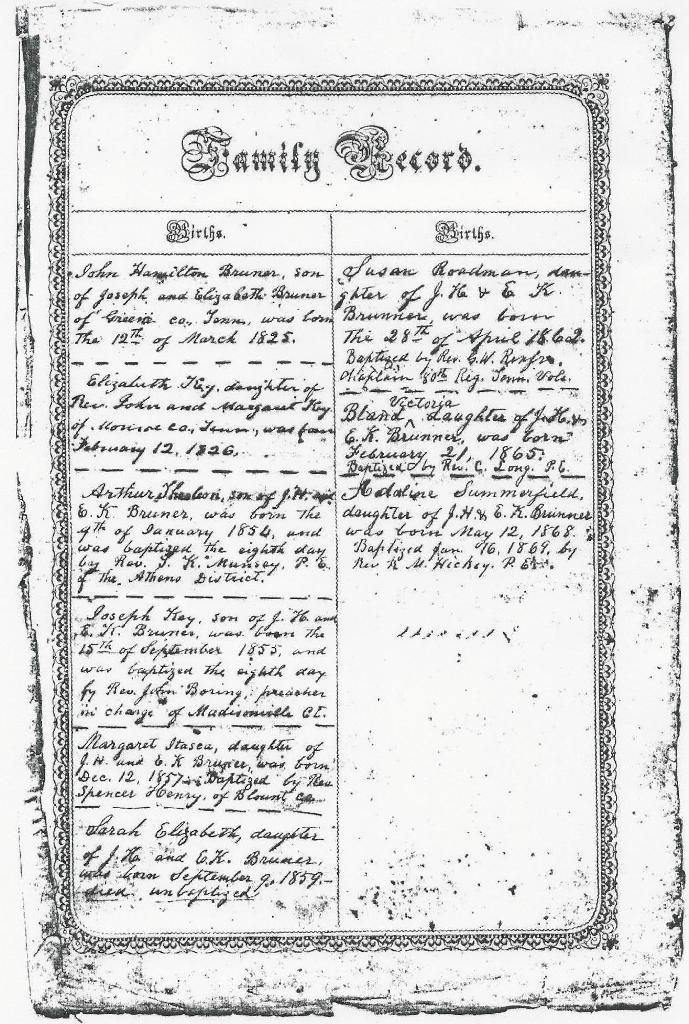 Family Record.
Births.
John Hamilton Bruner, son
of Joseph and Elizabeth Bruner
of Greene co., Tenn., was born
the 12th of March 1825.
Elizabeth Key, daughter of
Rev. John and Margaret Key
of Monroe co., Tenn., was born
February 12, 1826.
Arthur, son of J. H. and
E. K. Bruner, was born the
9th of January 1854, and
was baptized the eighth day
by Rev. J. K. Munsey, P. E.
of the Athens District.
Joseph Key, son of J. H. and
E. K. Bruner, was born the
15th of September 1855, and
was baptized the eighth day
by Rev. John Boring, preacher
in charge of Madisonville Ct.
Margaret Itasca, daughter of
J. H. and E. K. Bruner, was born
Dec. 12, 1857. Baptized by Rev
Spencer Henry, of Blount co.
Sarah Elizabeth, daughter
of J. H. and E. K. Bruner,
was born September 9, 1859.
died unbaptized
Births.
Susan Roadman, dau-
ghter of J. H. & E. K.
Brunner, was born
the 28th of April 1862.
Baptized by Rev. G. W. Renfro,
Chaplain Reg. Tenn. Vols.
Victoria
Bland ^ daughter of J. H. &
E. K. Brunner, was born
February 21, 1865.
Baptized by Rev. C. Long. P. E.
Adaline Summerfield,
daughter of J. H. & E. K. Brunner
was born May 12, 1868.
Baptized Jan. 16, 1869, by
Rev K. M. Hickey. P. E.